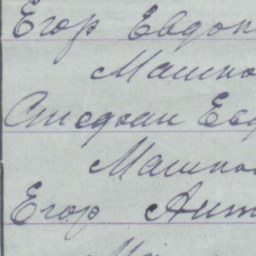 Егор Евдок
Машко
Стефан Евд
Машко
Егор Ант